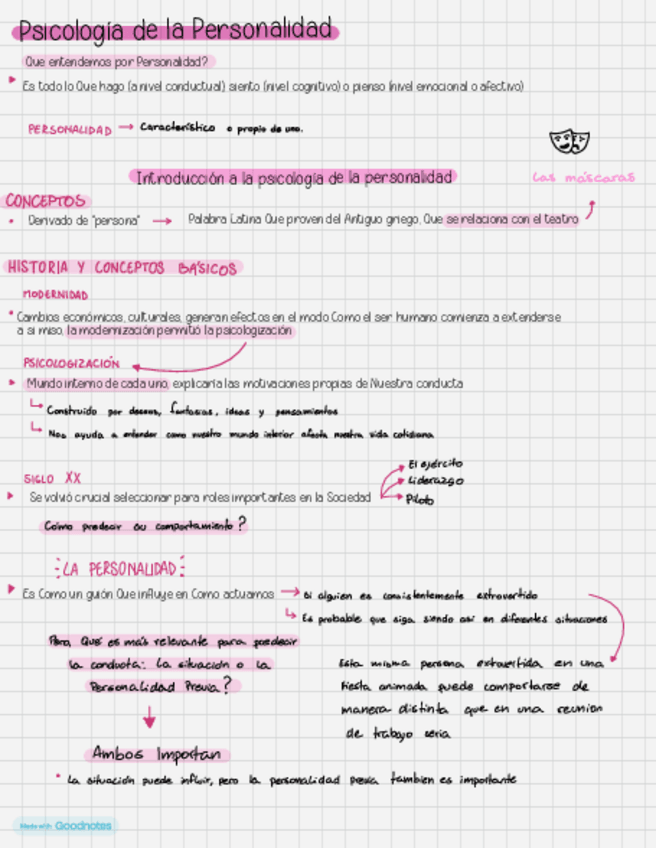 Psicología de la Personalidad
Que entendemos por Personalidad?
Es todo lo Que hago (a nivel conductual) siento (nivel cognitivo) o pienso (nivel emocional o afectivo)
PERSONALIDAD → Característico o propio de uno.
Introducción a la psicología de la personalidad
Las máscaras
CONCEPTOS
• Derivado de "persona" → Palabra Latina Que proven del Antiguo griego, Que se relaciona con el teatro
HISTORIA Y CONCEPTOS BÁSICOS
MODERNIDAD
• Cambios económicos, culturales, generan efectos en el modo Como el ser humano comienza a extenderse
a si miso, la modernización permitió la psicologización
PSICOLOGIZACIÓN
Mundo interno de cada uno, explicaría las motivaciones propias de Nuestra conducta
Construido por deseos, fantasias, ideas y pensamientos
Nos ayuda a entender como nuestro mundo interior afecta nuestra vida cotidiana
SIGLO XX
Se volvió crucial seleccionar para roles importantes en la Sociedad
El ejército
Liderazgo
Piloto
Cómo predecir su comportamiento?
LA PERSONALIDAD:
Es Como un guión Que influye en Como actuamos → Si alguien es consistentemente extrovertido
Es probable que siga siendo así en diferentes situaciones
Pero, Qué es más relevante para predecir
la conducta: La situación o la
Personalidad Previa?
Esta misma persona extrovertida en una
fiesta animada puede comportarse de
manera distinta que en una reunion
de trabajo seria
Ambos Importan
• La situación puede influir, pero la personalidad previa tambien es importante
Made with Goodnotes